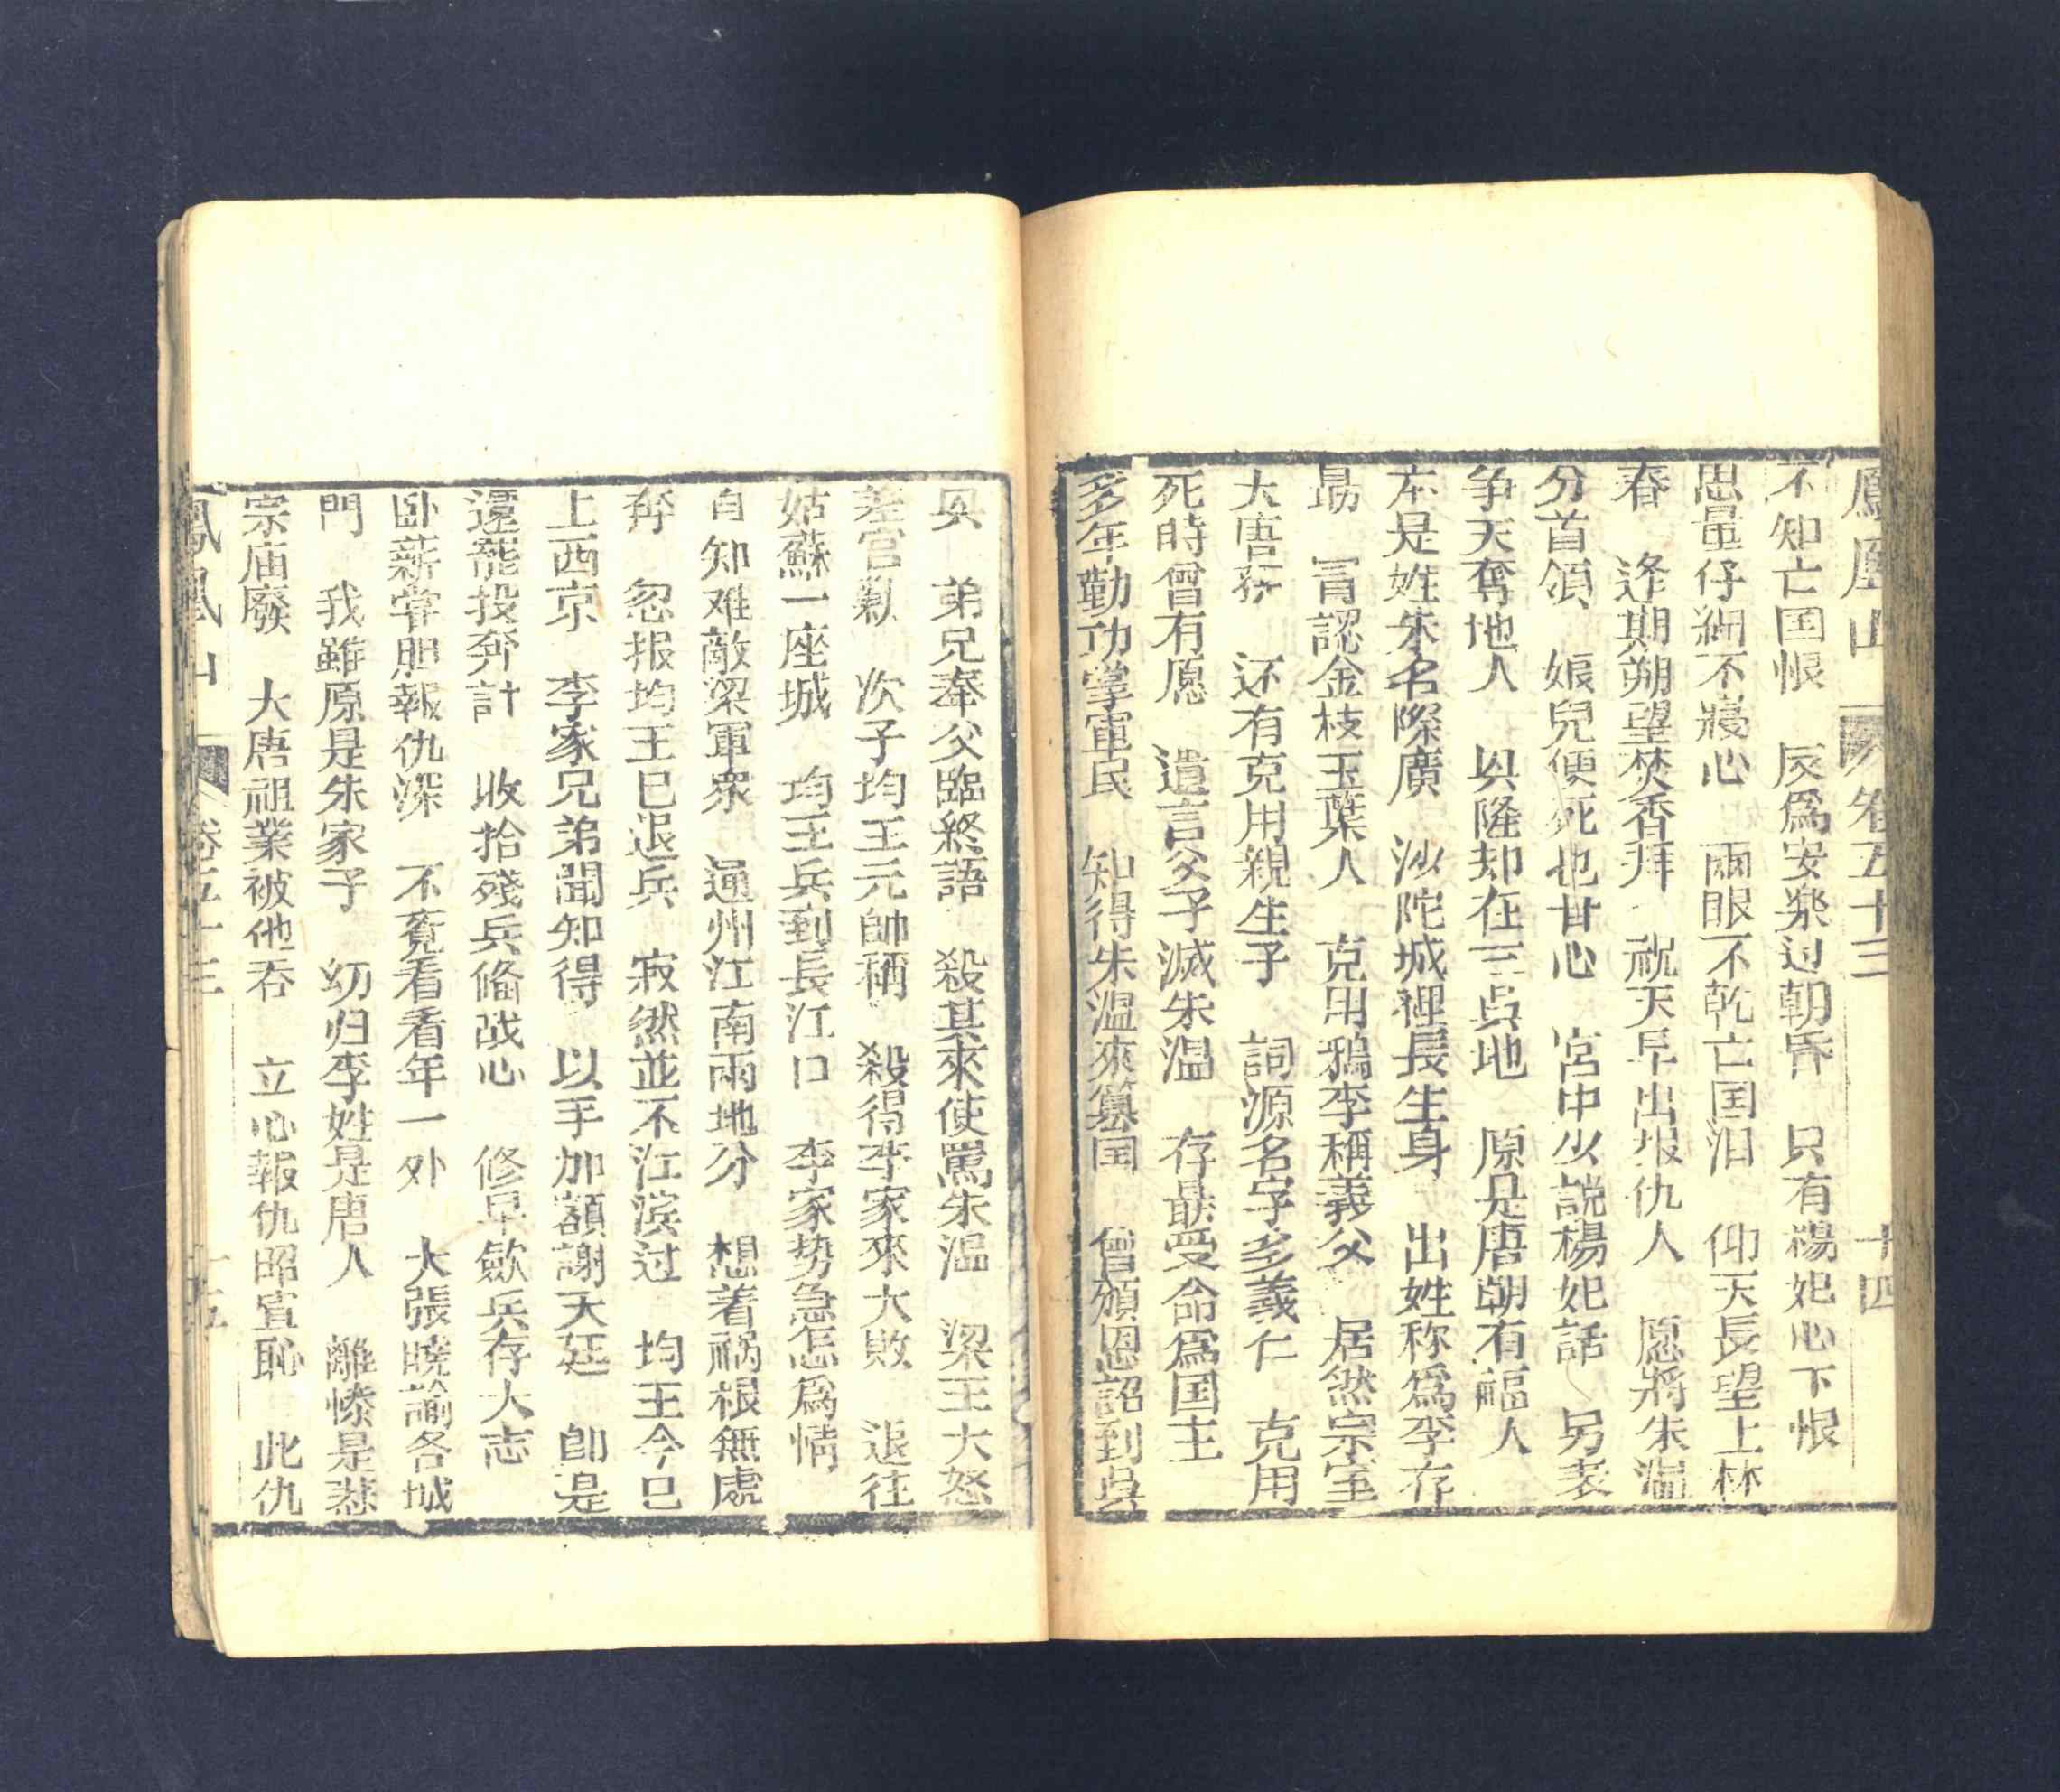 鳳凰山 卷五十三 十四
不知亡国恨 反爲安樂过朝昏 只有楊妃心下恨
思量仔細不寢心 兩眼不乾亡国泪 仰天長望上林
春 逄期朔望焚香拜 祝天早出报仇人 愿將朱温
分首領 娘兒便死也甘心 宮中少説楊妃話 另表
争天奪地人 興隆却在三兵地 原是唐朝有福人
本是姓朱名際廣 沙陀城裡長生身 出姓称爲李存
勗 冒認金枝玉葉人 克用鴉李稱義父 居然宗室
大唐孫 还有克用親生子 詞源名字多義仁 克用
死時曾有愿 遺言父子滅朱温 存最受命爲国主
多年勤功掌軍民 知得朱温來篡国 曾頒恩詔到吳
吳 弟兄奉父臨終語 殺其來使罵朱温 梁王大怒
差官勦 次子均王元帥稱 殺得李家來大敗 退往
姑蘇一座城 均王兵到長江口 李家势急怎爲情
自知难敵梁軍衆 逥州江南兩地分 想着禍根無處
奔 忽报均王已退兵 寂然並不江濱过 均王今已
上西京 李家兄弟聞知得 以手加額謝天廷 卽是
還罷投奔計 收拾殘兵偹战心 修早歛兵存大志
卧薪嘗胆報仇深 不覔看看年一外 大張曉諭各城
門 我雖原是朱家子 幼归李姓是唐人 離條是悲
宗庙廢 大唐祖業被他吞 立心報仇昭宣恥 此仇
鳳凰山 卷五十三 十五